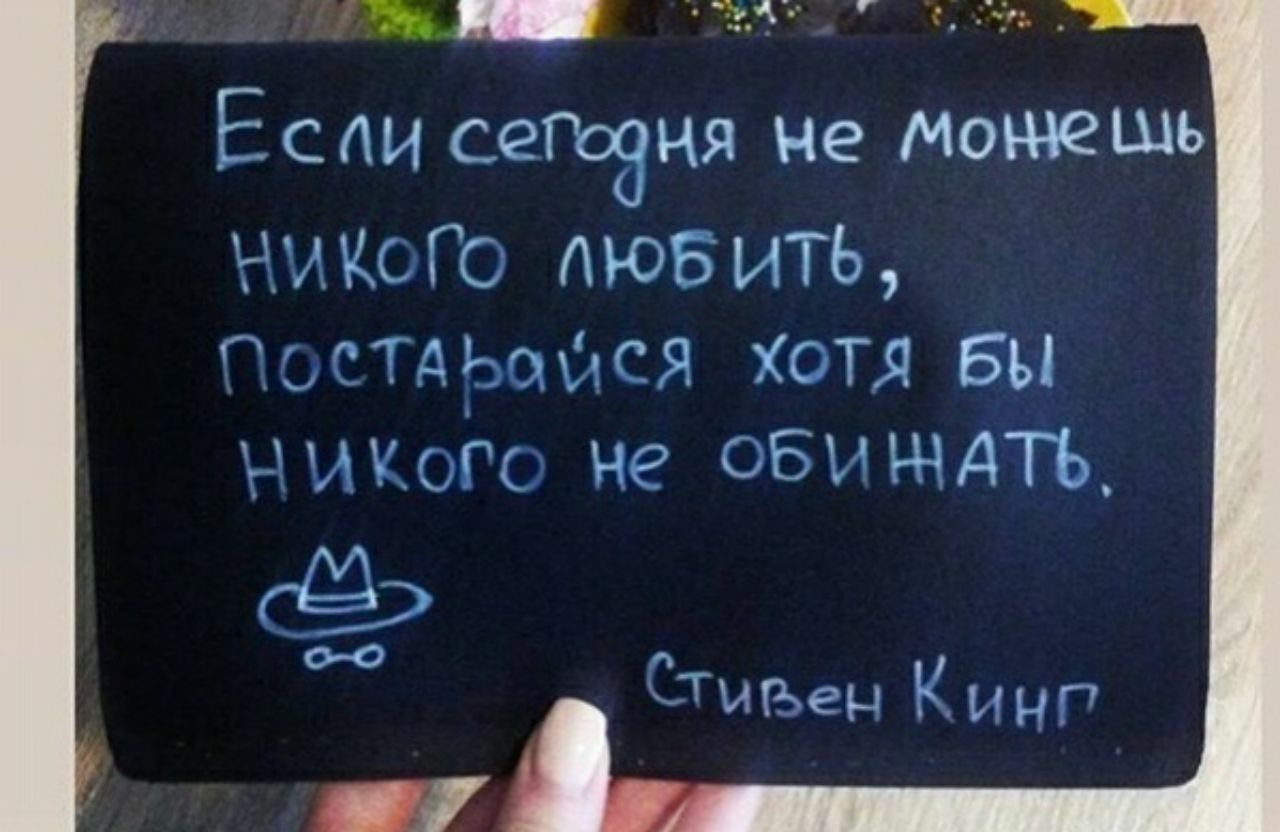 Если сегодня не можешь
никого любить,
постарайся хотя бы
никого не обижать.
Стивен Кинг